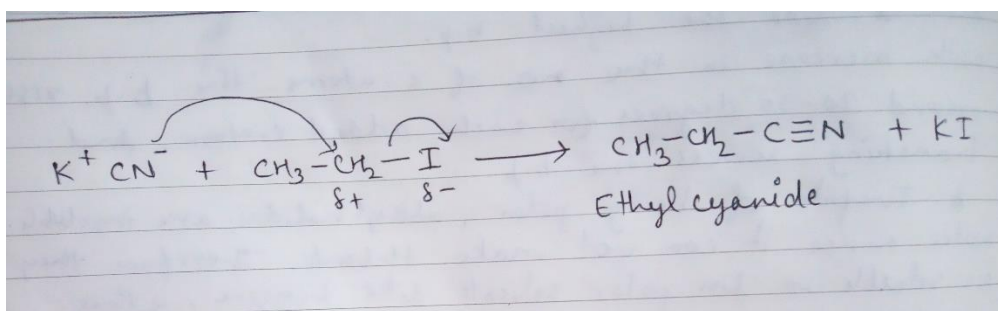 K⁺ CN⁻ + CH₃-CH₂-I ⟶ CH₃-CH₂-C≡N + KI
δ+ δ-
Ethyl cyanide